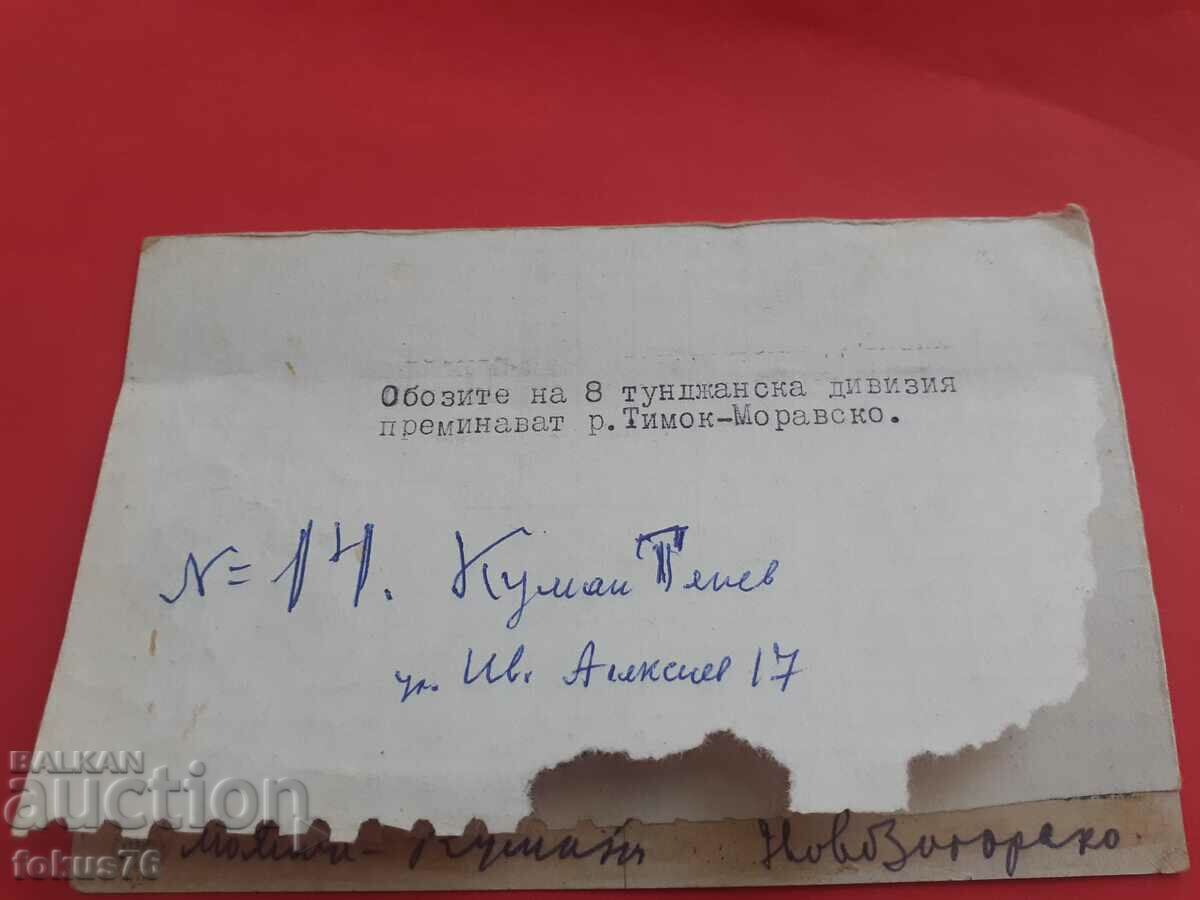 Обозите на 8 тунджанска дивизия
преминават р.Тимок-Моравско.
№ = 14. Куман Тенев
ул. Ив. Алексиев 17
НовоЗагорско.
BALKAN
auction
fokus76